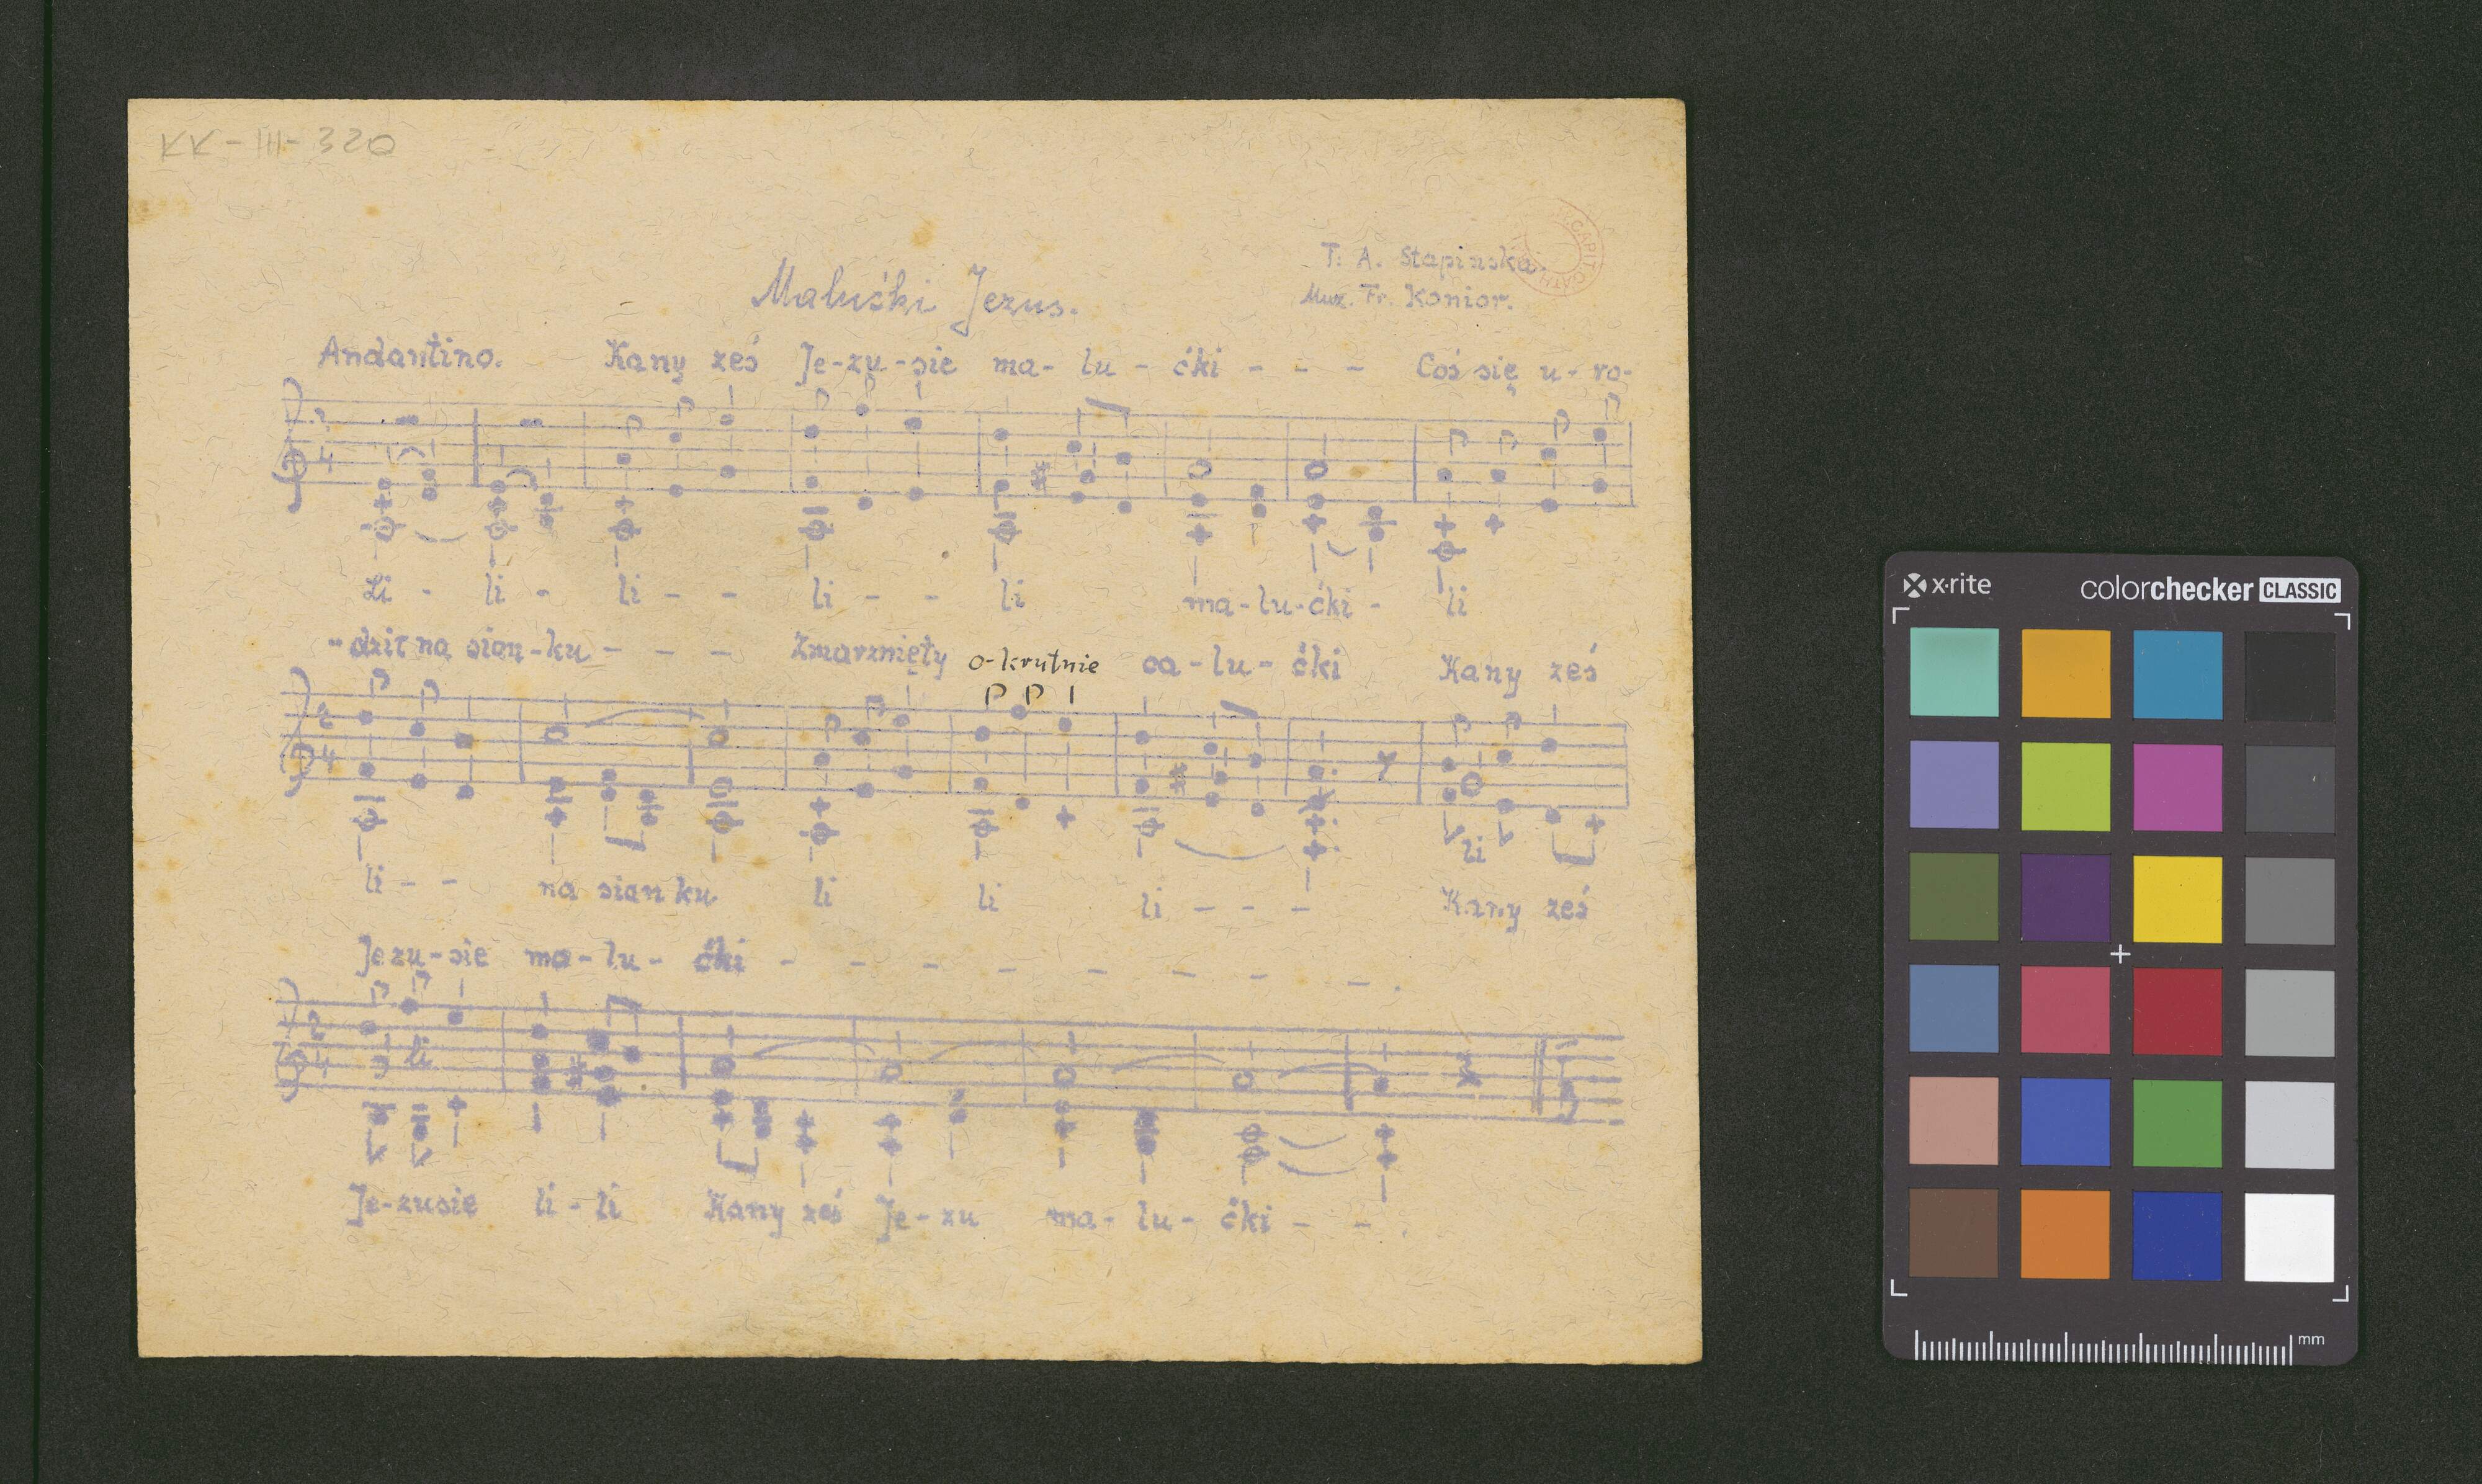 KK-III-320
T. A. Stapińska.
Maluśki Jezus.
Muz. Fr. Konior.
Andantino. Kanyześ Je-zu-sie ma-lu-ćki - - - Coś się u-ro-
2
4
Li - li - li - - li - - li ma-lu-ćki - li
-dził na sian-ku - - - Zmarznięty o-krutnie ca-lu-ćki Kanyześ
2
4
li
li - - na sianku li li li - - - Kanyześ
Jezu-sie ma-lu-ćki - - - - - - - - .
2
4
li
Je-zusie li-li Kanyześ Je-zu ma-lu-ćki - - .
x·rite colorchecker CLASSIC
mm